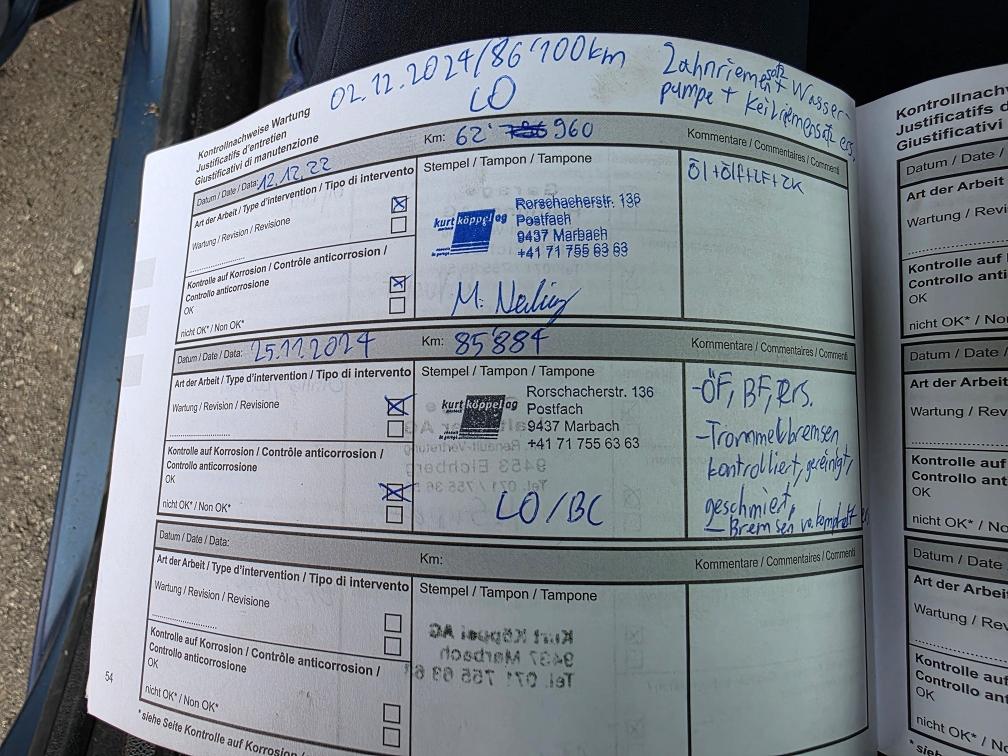 02.12.2024/86'100km
LO
Zahnriemensatz + Wasser-
pumpe + Keilriemensatz ers.
Kontrollnachweise Wartung
Justificatifs d'entretien
Giustificativi di manutenzione
Datum / Date / Data: 12.12.22
Km: 62' 960
Kommentare / Commentaires / Commenti
Art der Arbeit / Type d'intervention / Tipo di intervento
Wartung / Revision / Revisione
Kontrolle auf Korrosion / Contrôle anticorrosion /
Controllo anticorrosione
OK
nicht OK* / Non OK*
Stempel / Tampon / Tampone
kurt köppel ag
Rorschacherstr. 136
Postfach
9437 Marbach
+41 71 755 63 63
Öl+Ölf+LF+ZK
Datum / Date / Data: 25.11.2024
Km: 85'884
Kommentare / Commentaires / Commenti
Art der Arbeit / Type d'intervention / Tipo di intervento
Wartung / Revision / Revisione
Kontrolle auf Korrosion / Contrôle anticorrosion /
Controllo anticorrosione
OK
nicht OK* / Non OK*
Stempel / Tampon / Tampone
kurt köppel ag
Rorschacherstr. 136
Postfach
9437 Marbach
+41 71 755 63 63
LO/BC
-ÖF, BF, ers.
-Trommelbremsen
kontrolliert, gereinigt,
geschmiert,
- Bremsen vo. komplett
Datum / Date / Data:
Km:
Kommentare / Commentaires / Commenti
Art der Arbeit / Type d'intervention / Tipo di intervento
Wartung / Revision / Revisione
Kontrolle auf Korrosion / Contrôle anticorrosion /
Controllo anticorrosione
OK
nicht OK* / Non OK*
Stempel / Tampon / Tampone
54
* siehe Seite Kontrolle auf Korrosion
Kontrollnachw
Justificatifs d
Giustificativi
Datum / Date /
Art der Arbeit
Wartung / Revi
Kontrolle auf
Controllo ant
OK
nicht OK* / No
Datum / Date
Art der Arbei
Wartung / Rev
Kontrolle auf
Controllo an
OK
nicht OK* / No
Datum / Date
Art der Arbei
Wartung / Re
Kontrolle auf
Controllo an
OK
nicht OK* / No
* siehe